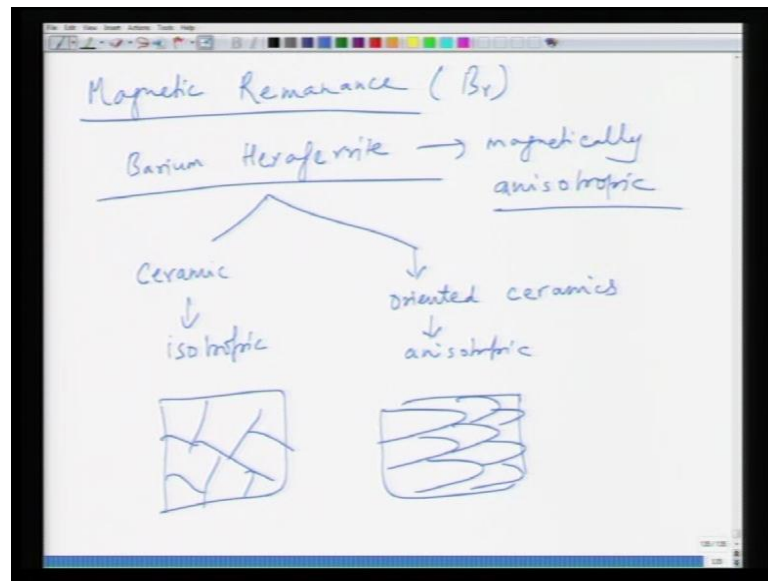 File Edit View Insert Actions Tools Help
Magnetic Remanance (Br)
Barium Hexaferrite → magnetically
anisotropic
Ceramic
oriented ceramics
isotropic
anisotropic